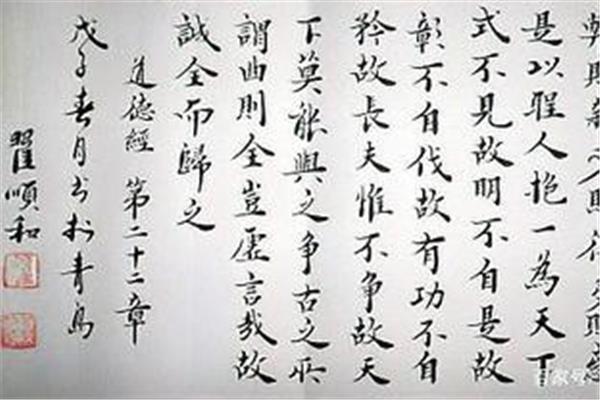 則新少則得多則惑
是以聖人抱一為天下
式不見故明不自是故
彰不自伐故有功不自
矜故長夫惟不争故天
下莫能與之争古之所
謂曲則全豈虛言哉故
誠全而歸之
道德經 第二十二章
戊子春月书於青島
翟順和
百家号